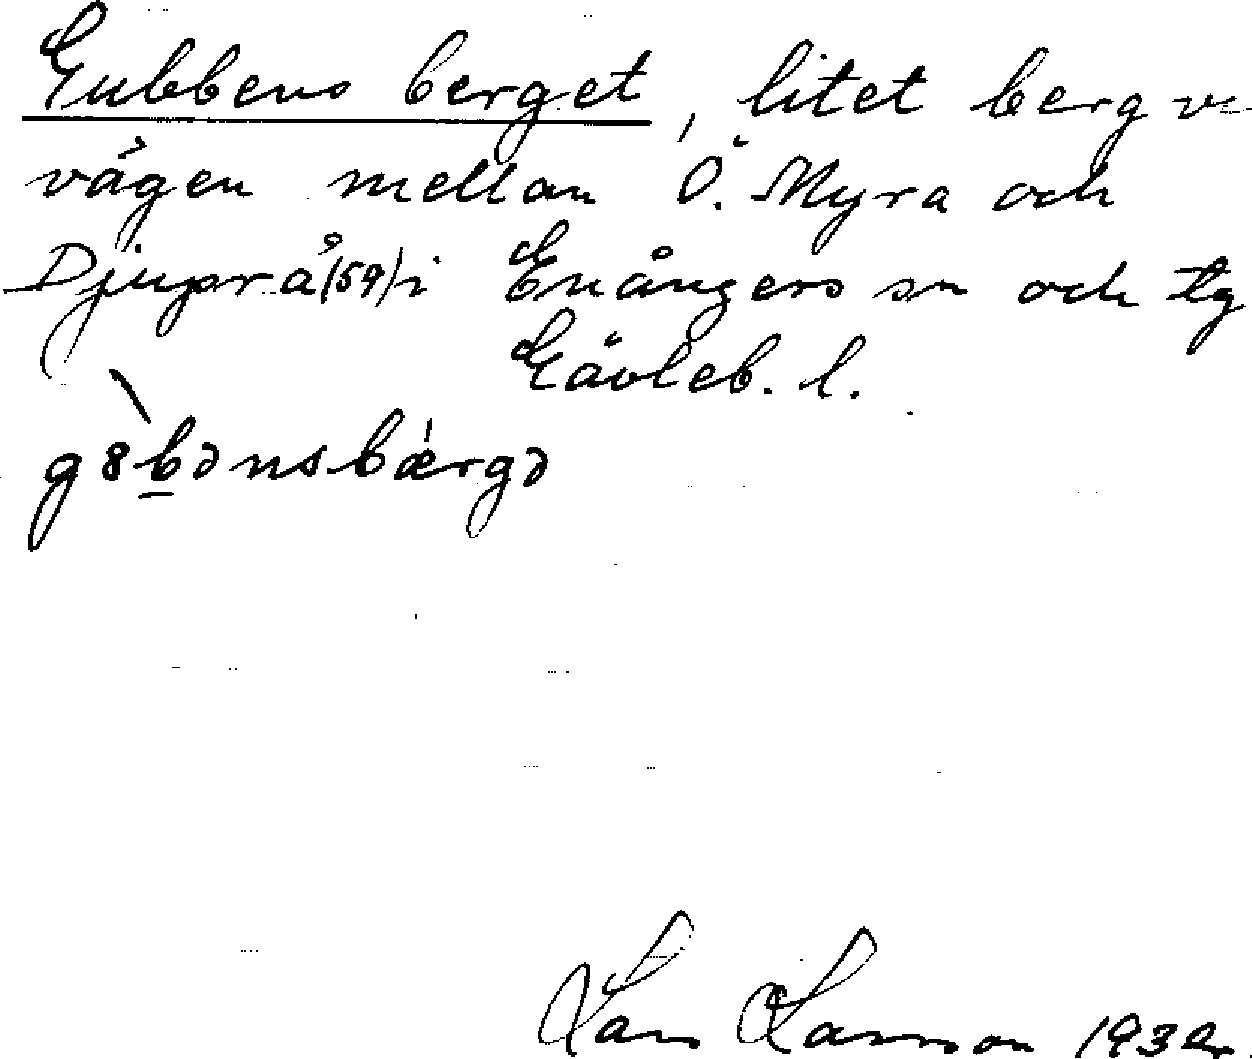 Gubbens berget, litet berg v
vägen mellan Ö. Myra och
Djuprå (59) i Enångers sn och tg
Gävleb. l.
Lars Larsson 193